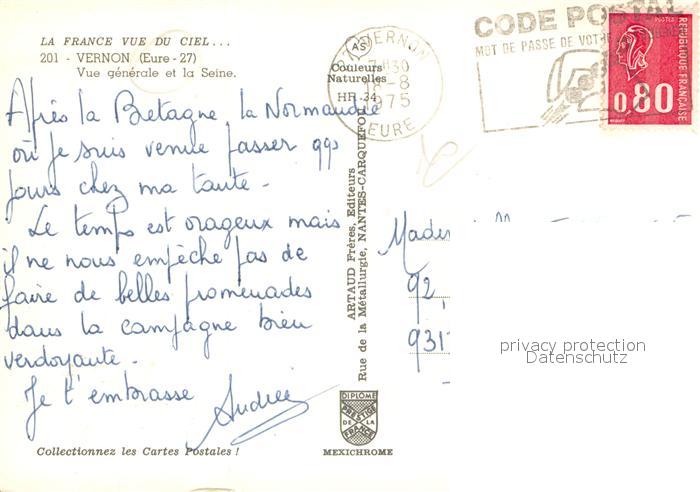 LA FRANCE VUE DU CIEL...
201 - VERNON (Eure - 27)
Vue générale et la Seine.
Après la Bretagne, la Normandie
où je suis venue passer qqs
jours chez ma tante -
Le temps est orageux mais
il ne nous empêche pas de
faire de belles promenades
dans la campagne bien
verdoyante.
Je t'embrasse Andrée
Collectionnez les Cartes Postales !
AS
Couleurs
Naturelles
HR 34
ARTAUD Frères, Editeurs
Rue de la Métallurgie, NANTES-CARQUEFOU
DIPLOME
PRESTIGE
DE LA
FRANCE
MEXICHROME
VERNON
18-8
1975
EURE
CODE POSTAL
MOT DE PASSE DE VOTRE
POSTES
REPUBLIQUE FRANÇAISE
0,80
92
931
privacy protection
Datenschutz